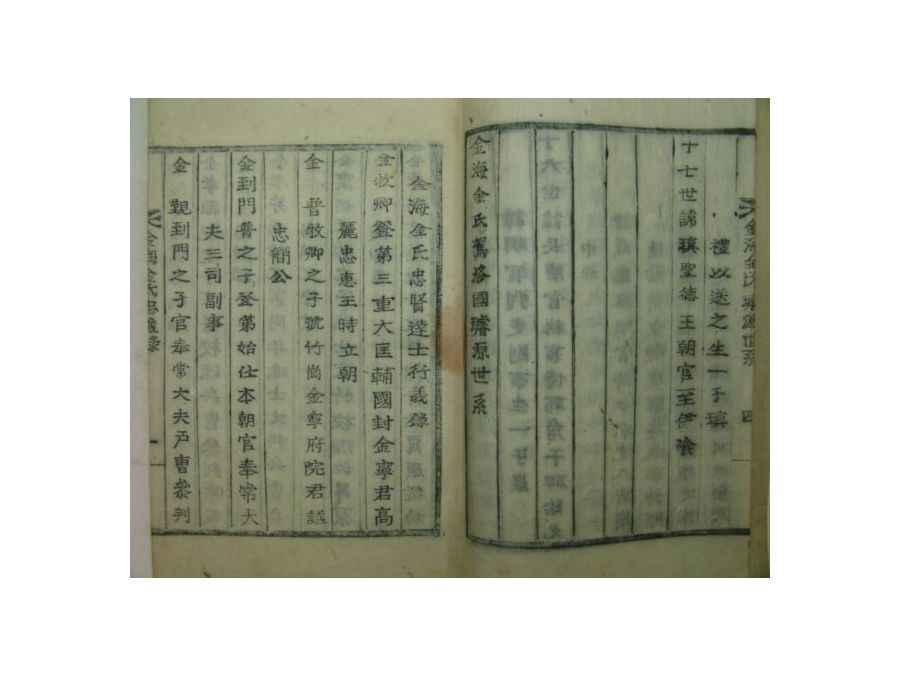 禮以送之生一子瑱
十七世諱瑱聖德王朝官至伊飡
金海金氏駕洛國璿源世系
金海金氏忠賢達士行義錄
金牧卿登第三重大匡輔國封金寧君高
麗忠惠王時立朝
金 普牧卿之子號竹崗金寧府院君諡
忠簡公
金到門普之子登第始仕本朝官奉常大
夫三司副事
金 觀到門之子官奉常大夫戶曹叅判